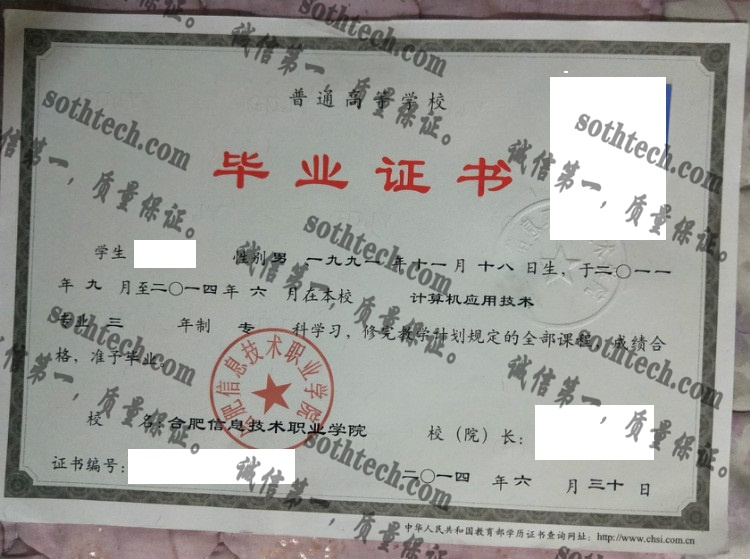 普通高等学校
毕业证书
学生 性别 男 一九九一年十一月十八日生，于二〇一一
年九月至二〇一四年六月在本校 计算机应用技术
专业 三 年制 专 科学习，修完教学计划规定的全部课程，成绩合
格，准予毕业。
合肥信息技术职业学院
校 名：合肥信息技术职业学院 校（院）长：
证书编号： 二〇一四年六月三十日
中华人民共和国教育部学历证书查询网址：http://www.chsi.com.cn
sothtech.com
诚信第一，质量保证。
sothtech.com
诚信第一，质量保证。
sothtech.com
诚信第一，质量保证。
sothtech.com
诚信第一，质量保证。
sothtech.com
诚信第一，质量保证。
sothtech.com
诚信第一，质量保证。
sothtech.com
诚信第一，质量保证。